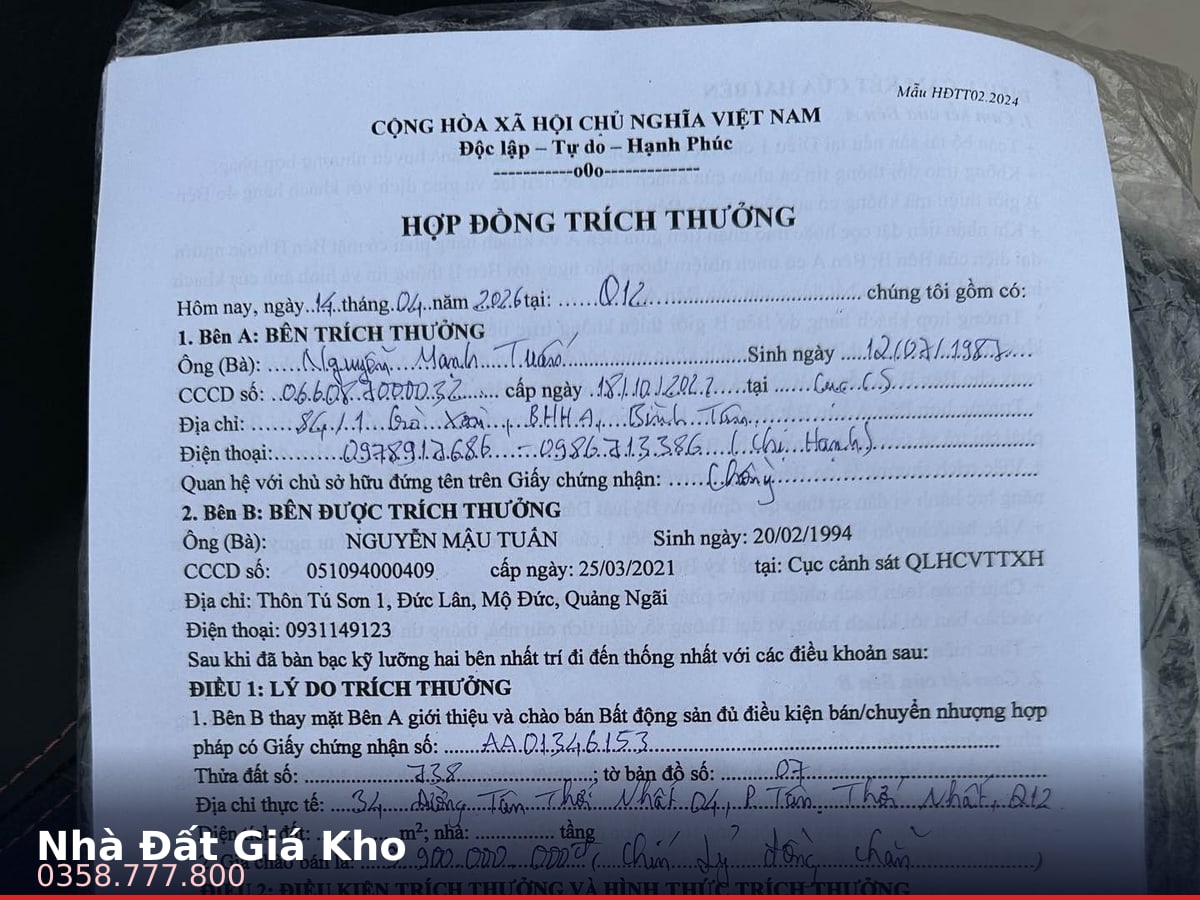 Mẫu HĐTT02.2024
CỘNG HÒA XÃ HỘI CHỦ NGHĨA VIỆT NAM
Độc lập – Tự do – Hạnh Phúc
-----------o0o-------------
HỢP ĐỒNG TRÍCH THƯỞNG
Hôm nay, ngày 14 tháng 04 năm 2026 tại: Q12 chúng tôi gồm có:
1. Bên A: BÊN TRÍCH THƯỞNG
Ông (Bà): Nguyễn Mạnh Tuấn Sinh ngày 12/07/1987
CCCD số: 066087000032 cấp ngày 18/10/2022 tại Cục C.S.
Địa chỉ: 84/1 Gò Xoài, BHHA, Bình Tân
Điện thoại: 0978912686 - 0986713386 (Chị Hạnh)
Quan hệ với chủ sở hữu đứng tên trên Giấy chứng nhận: Chồng
2. Bên B: BÊN ĐƯỢC TRÍCH THƯỞNG
Ông (Bà): NGUYỄN MẬU TUẤN Sinh ngày: 20/02/1994
CCCD số: 051094000409 cấp ngày: 25/03/2021 tại: Cục cảnh sát QLHCVTTXH
Địa chỉ: Thôn Tú Sơn 1, Đức Lân, Mộ Đức, Quảng Ngãi
Điện thoại: 0931149123
Sau khi đã bàn bạc kỹ lưỡng hai bên nhất trí đi đến thống nhất với các điều khoản sau:
ĐIỀU 1: LÝ DO TRÍCH THƯỞNG
1. Bên B thay mặt Bên A giới thiệu và chào bán Bất động sản đủ điều kiện bán/chuyển nhượng hợp
pháp có Giấy chứng nhận số: AA01346153
Thửa đất số: 738; tờ bản đồ số: 07
Địa chỉ thực tế: 34 đường Tân Thới Nhất 04, P. Tân Thới Nhất, Q12
Diện tích đất: m²; nhà: tầng
Giá chào bán là: 900.000.000đ ( Chín tỷ đồng chẵn )
ĐIỀU 2: ĐIỀU KIỆN TRÍCH THƯỞNG VÀ HÌNH THỨC TRÍCH THƯỞNG
Nhà Đất Giá Kho
0358.777.800